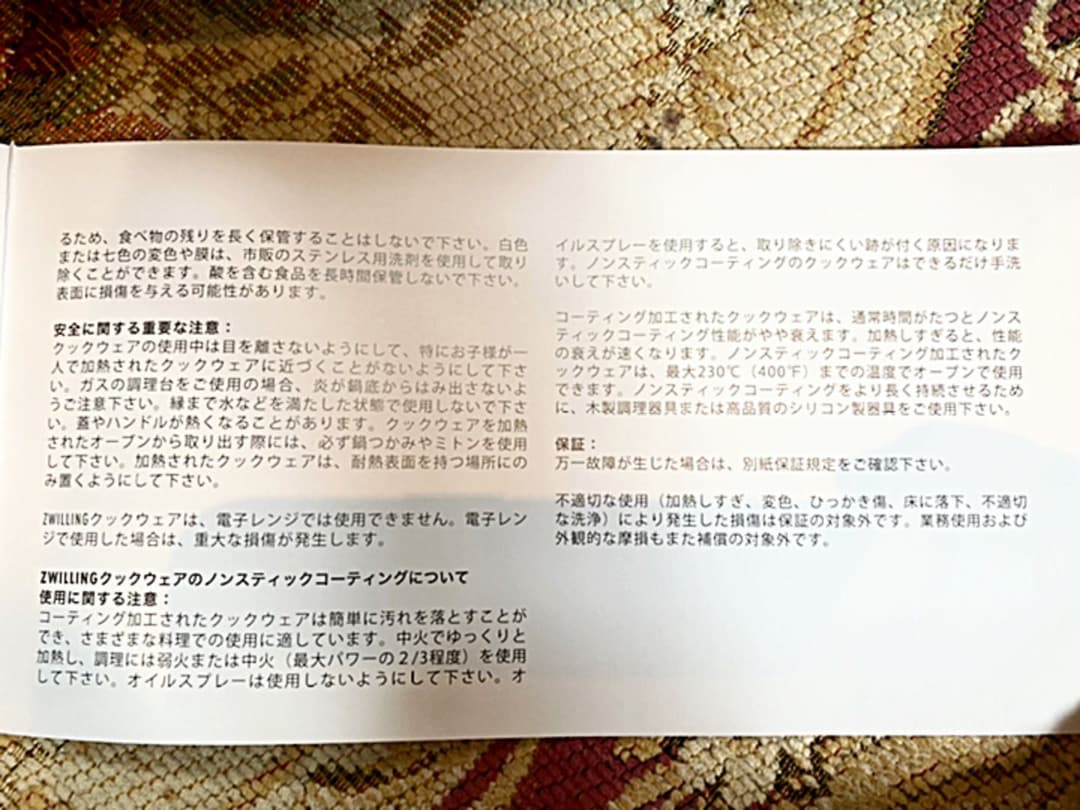 るため、食べ物の残りを長く保管することはしないで下さい。白色
または七色の変色や膜は、市販のステンレス用洗剤を使用して取り
除くことができます。酸を含む食品を長時間保管しないで下さい。
表面に損傷を与える可能性があります。
安全に関する重要な注意：
クックウェアの使用中は目を離さないようにして、特にお子様が一
人で加熱されたクックウェアに近づくことがないようにして下さ
い。ガスの調理台をご使用の場合、炎が鍋底からはみ出さないよ
うご注意下さい。縁まで水などを満たした状態で使用しないで下さ
い。蓋やハンドルが熱くなることがあります。クックウェアを加熱
されたオーブンから取り出す際には、必ず鍋つかみやミトンを使用
して下さい。加熱されたクックウェアは、耐熱表面を持つ場所にの
み置くようにして下さい。
ZWILLINGクックウェアは、電子レンジでは使用できません。電子レン
ジで使用した場合は、重大な損傷が発生します。
ZWILLINGクックウェアのノンスティックコーティングについて
使用に関する注意：
コーティング加工されたクックウェアは簡単に汚れを落とすことが
でき、さまざまな料理での使用に適しています。中火でゆっくりと
加熱し、調理には弱火または中火（最大パワーの２/3程度）を使用
して下さい。オイルスプレーは使用しないようにして下さい。オ
イルスプレーを使用すると、取り除きにくい跡が付く原因になりま
す。ノンスティックコーティングのクックウェアはできるだけ手洗
いして下さい。
コーティング加工されたクックウェアは、通常時間がたつとノンス
ティックコーティング性能がやや衰えます。加熱しすぎると、性能
の衰えが速くなります。ノンスティックコーティング加工されたク
ックウェアは、最大230℃（400℉）までの温度でオーブンで使用
できます。ノンスティックコーティングをより長く持続させるため
に、木製調理器具または高品質のシリコン製器具をご使用下さい。
保証：
万一故障が生じた場合は、別紙保証規定をご確認下さい。
不適切な使用（加熱しすぎ、変色、ひっかき傷、床に落下、不適切
な洗浄）により発生した損傷は保証の対象外です。業務使用および
外観的な摩損もまた補償の対象外です。